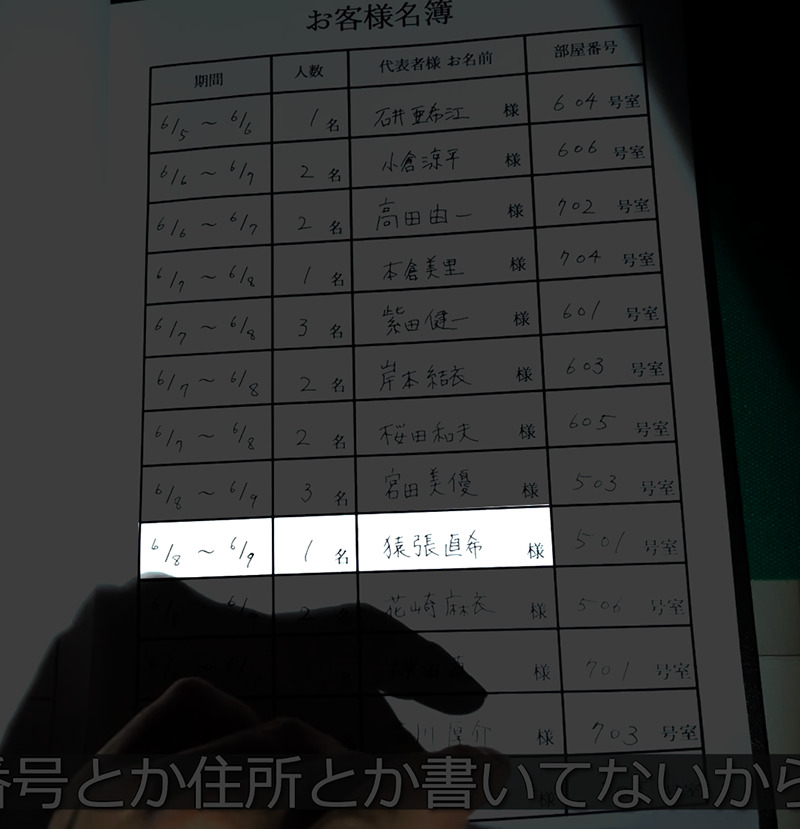 お客様名簿
期間 人数 代表者様 お名前 部屋番号
6/5 ～ 6/6 1 名 石井亜希江 様 604 号室
6/6 ～ 6/7 2 名 小倉涼平 様 606 号室
6/6 ～ 6/7 2 名 高田由一 様 702 号室
6/7 ～ 6/8 1 名 本倉美里 様 704 号室
6/7 ～ 6/8 3 名 紫田健一 様 601 号室
6/7 ～ 6/8 2 名 岸本結衣 様 603 号室
6/7 ～ 6/8 2 名 桜田和夫 様 605 号室
6/8 ～ 6/9 3 名 宮田美優 様 503 号室
6/8 ～ 6/9 1 名 猿張直希 様 501 号室
花崎麻衣 様 506 号室
様 701 号室
川 様 703 号室
様
番号とか住所とか書いてないから